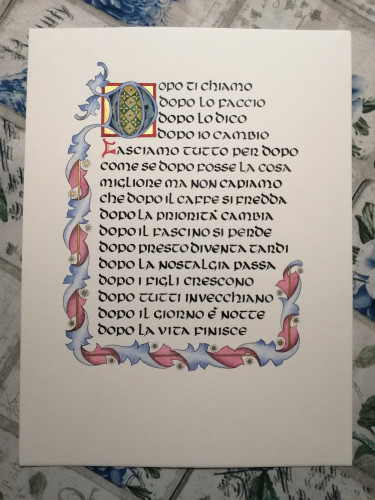 Dopo ti chiamo
dopo lo faccio
dopo lo dico
dopo io cambio
Lasciamo tutto per dopo
come se dopo fosse la cosa
migliore ma non capiamo
che dopo il caffe si fredda
dopo la priorita' cambia
dopo il fascino si perde
dopo presto diventa tardi
dopo la nostalgia passa
dopo i figli crescono
dopo tutti invecchiano
dopo il giorno é notte
dopo la vita finisce